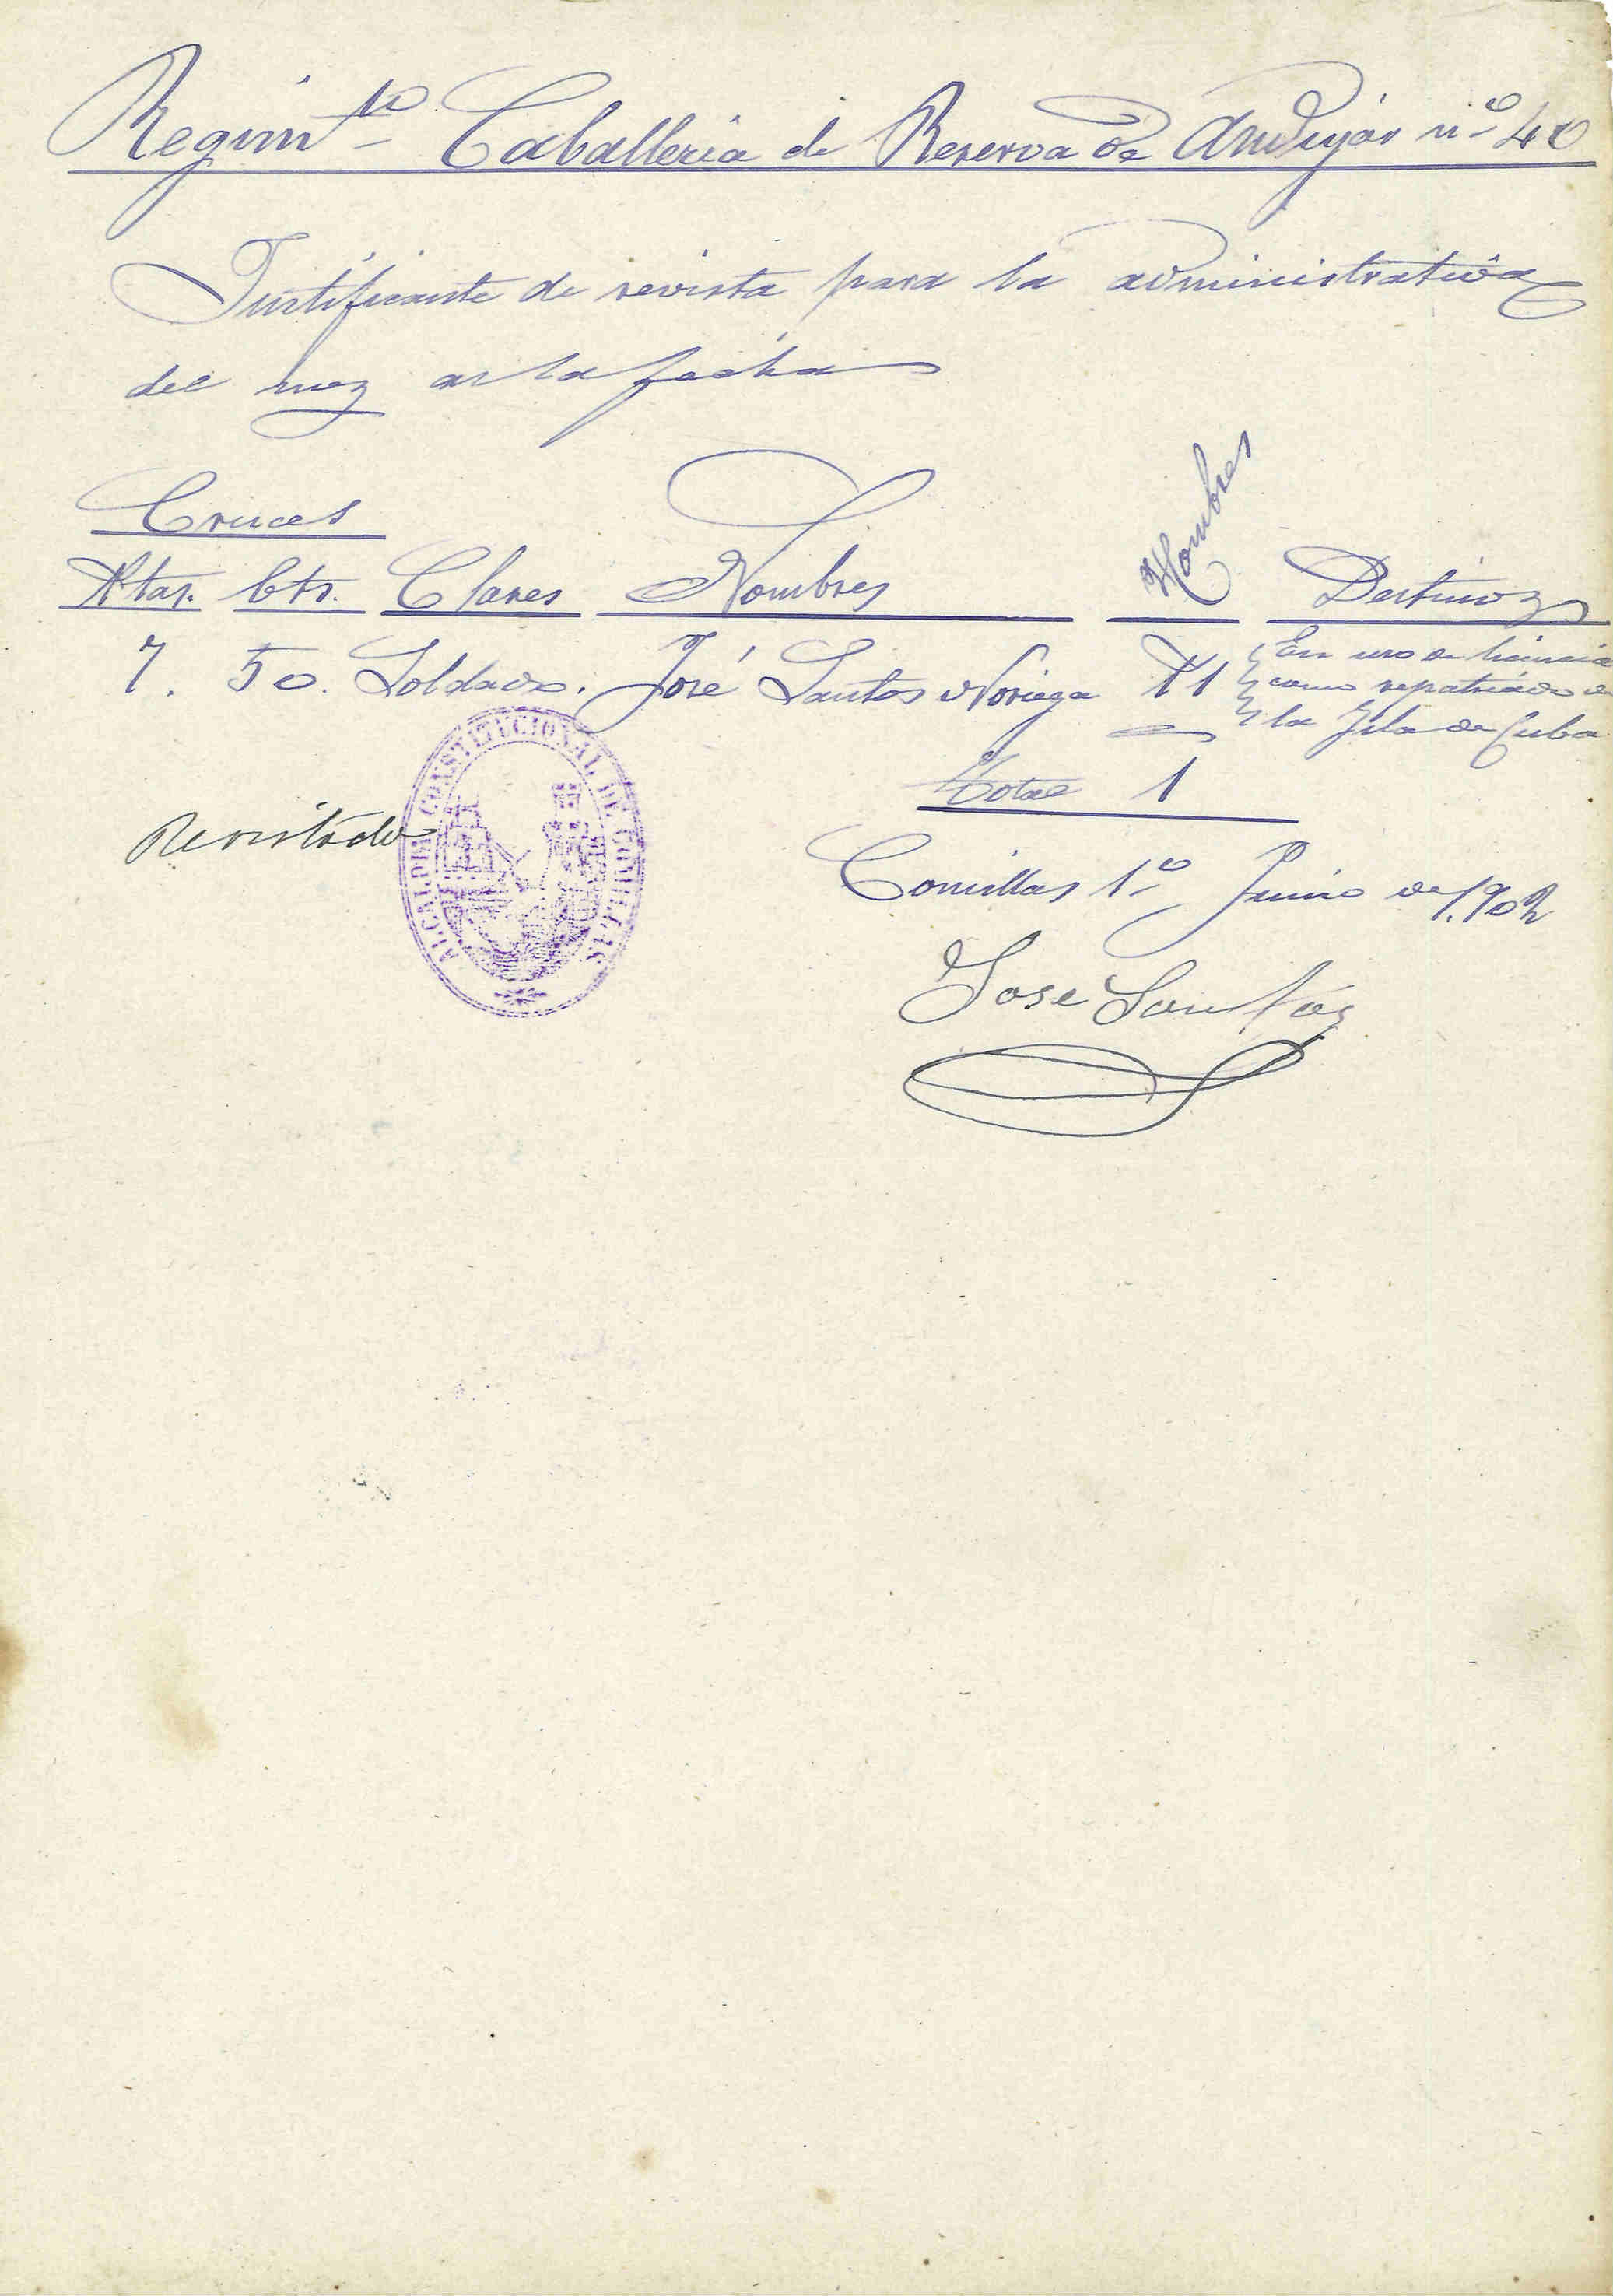 Regimto Caballeria de Reserva de Andujar nº 40
Justificante de revista para la administrativa
del mez de la fecha
Cruces
Ptas. Cts. Clases Nombres Hombres Destinoz
7. 50. Soldado. José Santos Noriega 1
En uso de licencia
como repatriado de
la Isla de Cuba
Total 1
Revistado
ALCALDIA CONSTITUCIONAL DE COMILLAS
Comillas 1º Junio de 1.902
Jose Santos